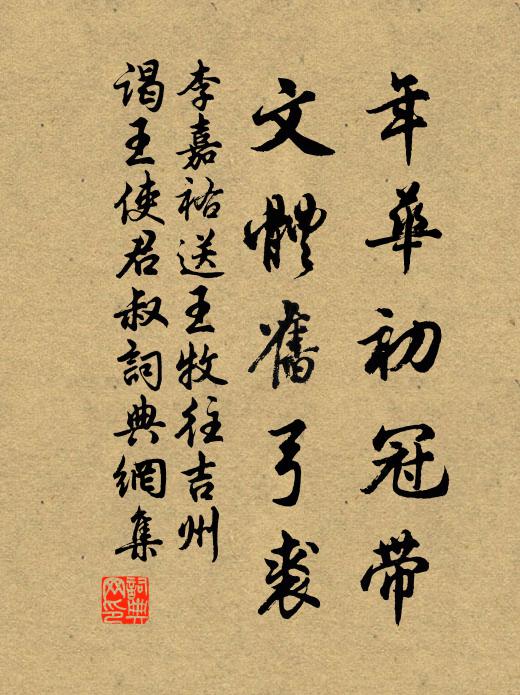 年華初冠帶
文體舊弓裘
李嘉祐送王牧往吉州
謁王使君叔詞典網集
詞典網印